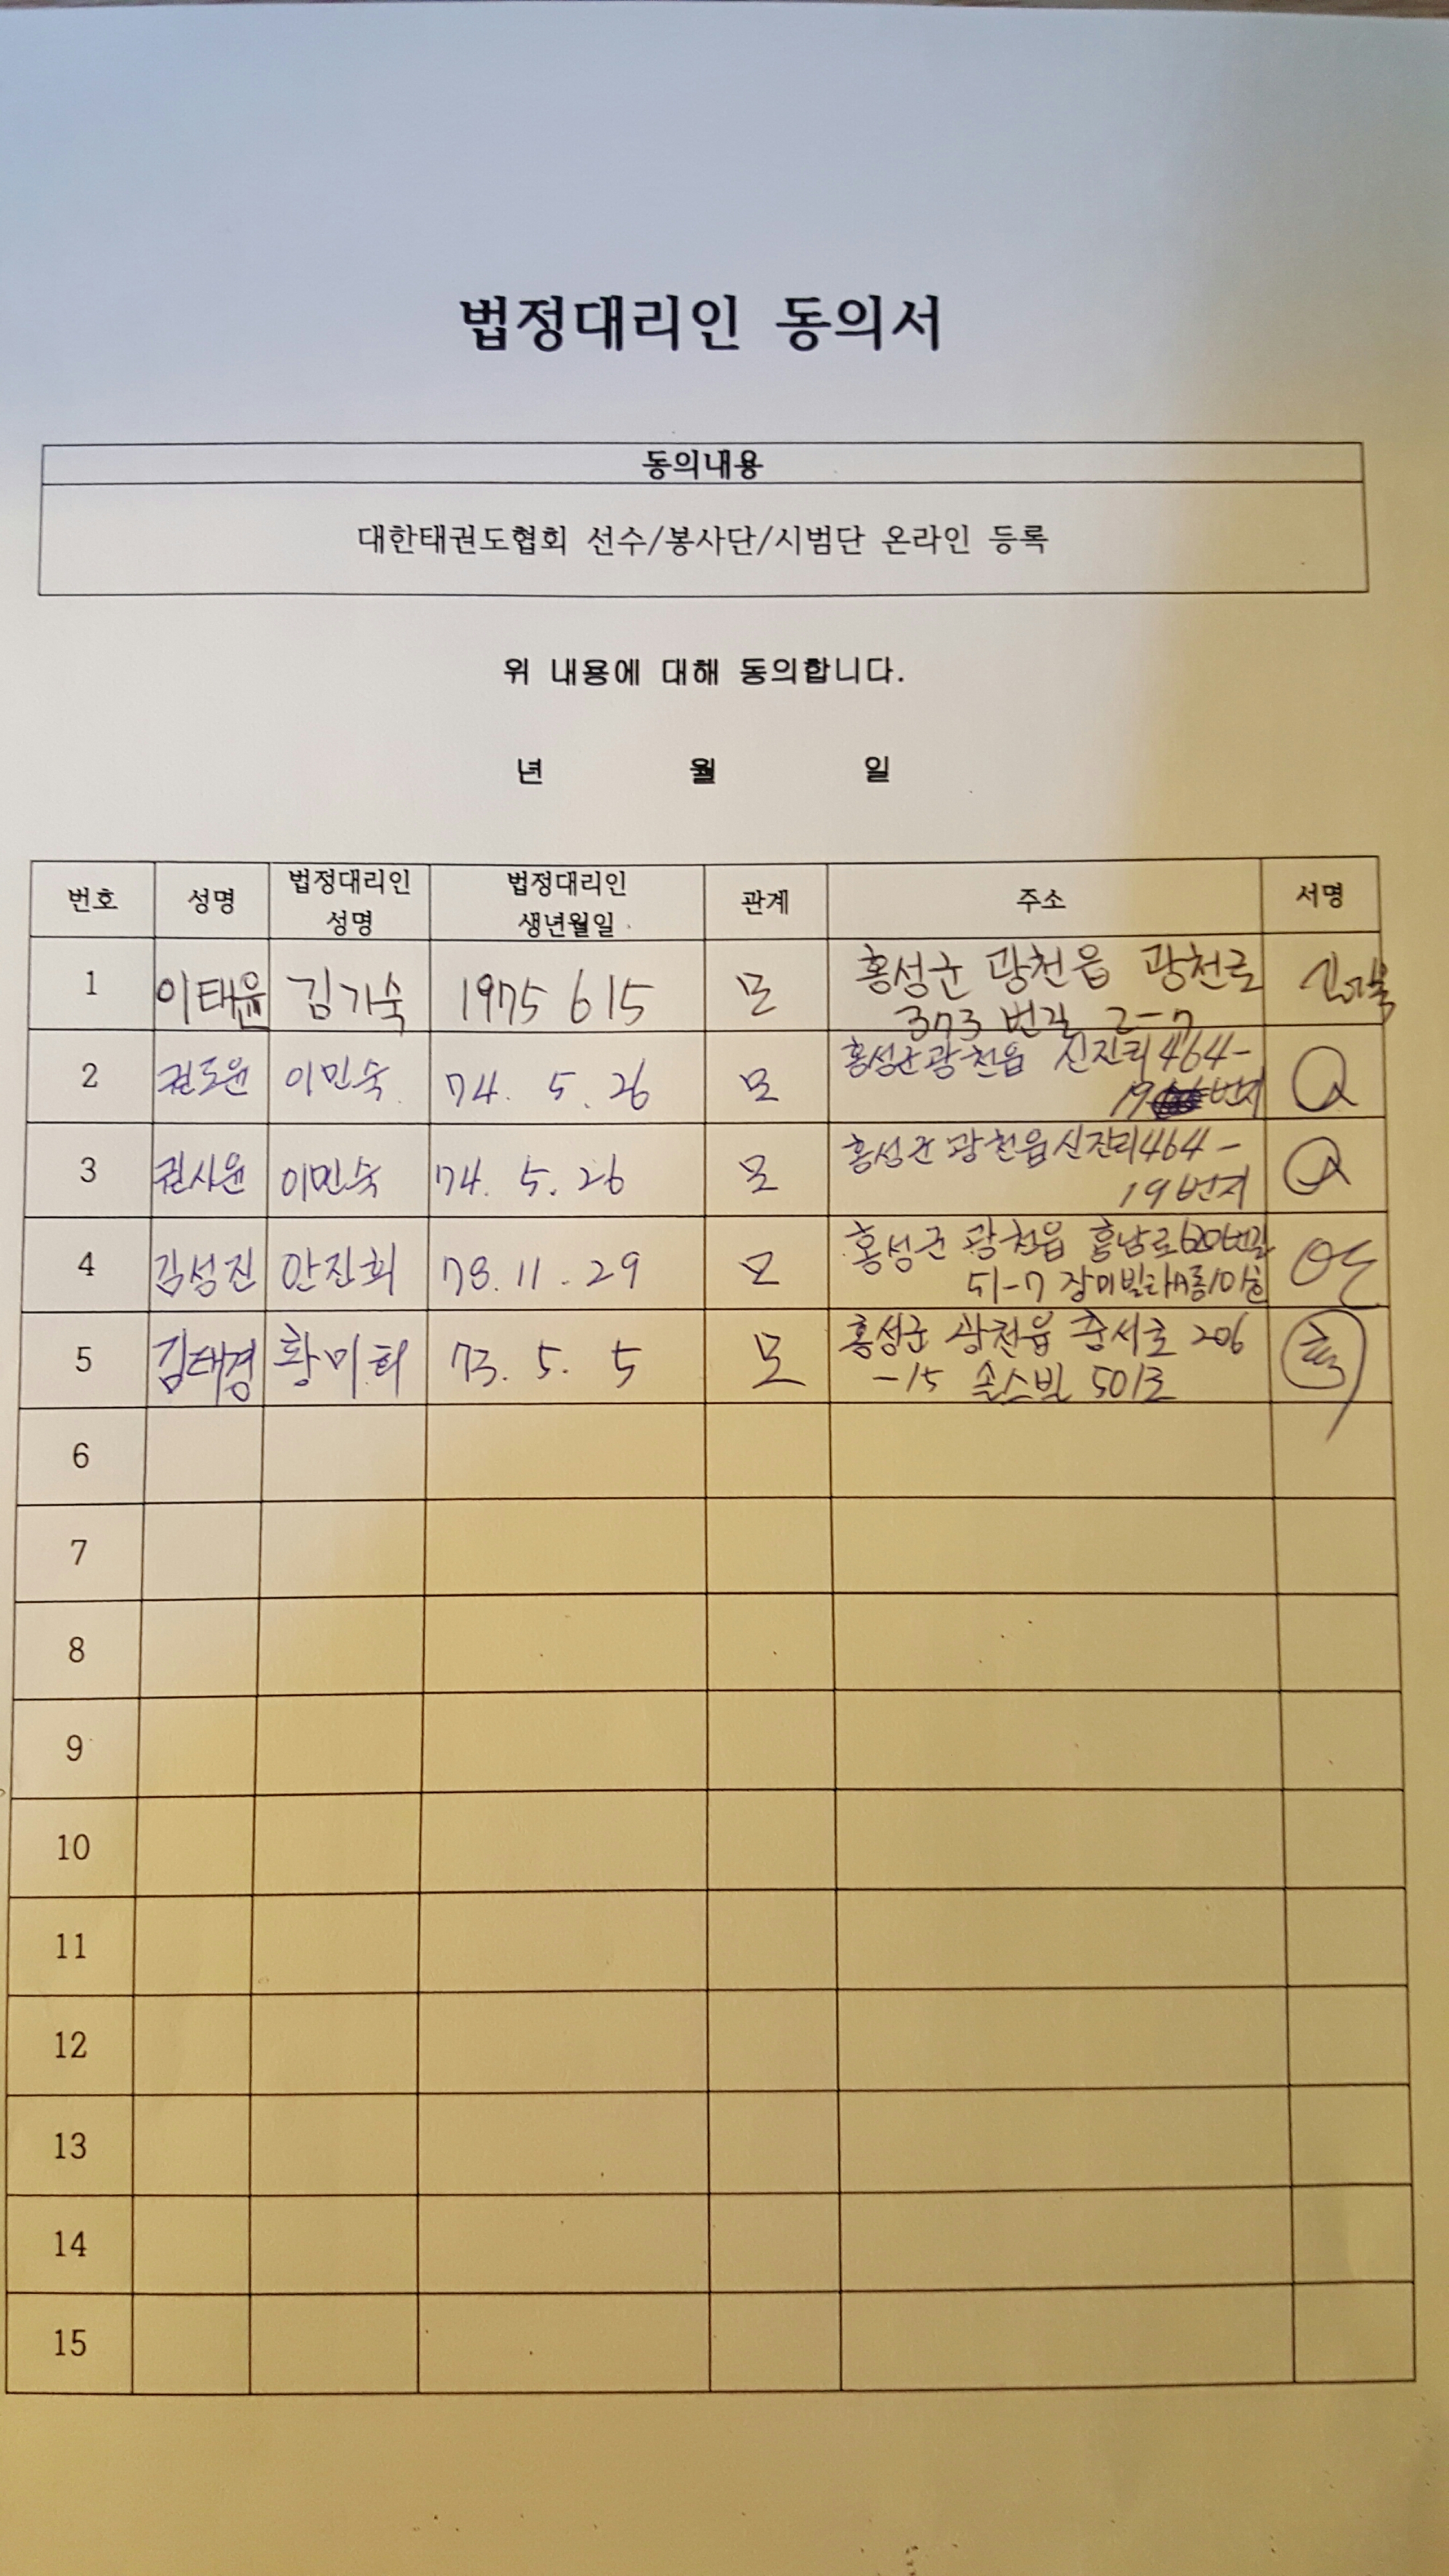 법정대리인 동의서
동의내용
대한태권도협회 선수/봉사단/시범단 온라인 등록
위 내용에 대해 동의합니다.
년 월 일
번호 성명 법정대리인 성명 법정대리인 생년월일 관계 주소 서명
1 이태윤 김기숙 1975 6 15 모 홍성군 광천읍 광천로
373 번길 2-7
2 권도윤 이민숙 74. 5. 26 모 홍성군 광천읍 신진리 464-
19 번지
3 권시윤 이민숙 74. 5. 26 모 홍성군 광천읍 신진리 464-
19 번지
4 김성진 안진희 78. 11. 29 모 홍성군 광천읍 홍남로 620번길
51-7 장미빌라 A동 101호
5 김태경 황미희 73. 5. 5 모 홍성군 광천읍 충서로 206
-15 솔스빌 501호
6
7
8
9
10
11
12
13
14
15